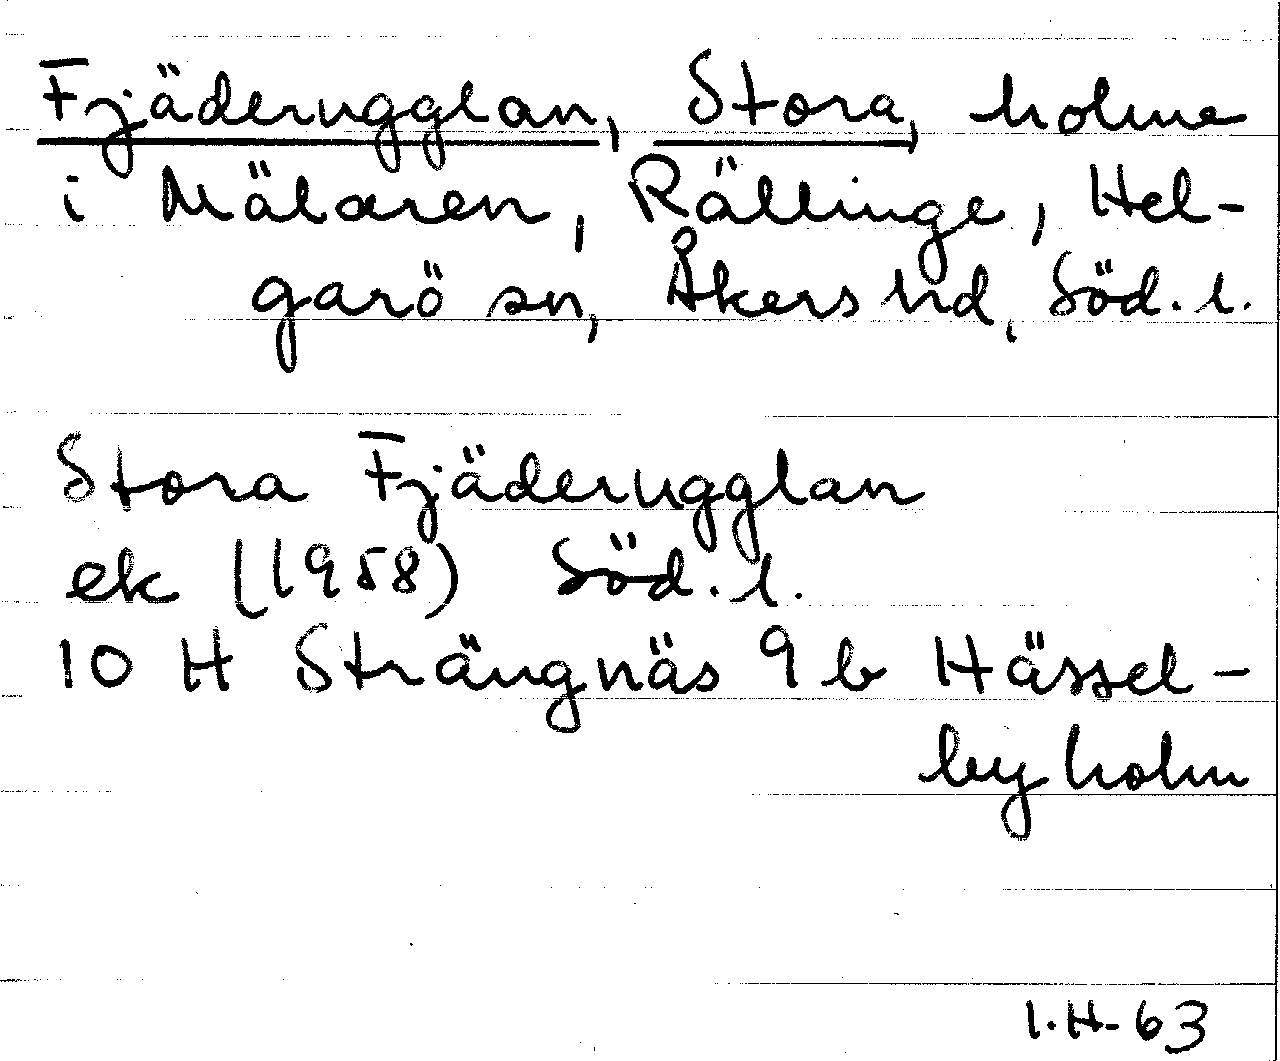 Fjäderugglan, Stora, holme
i Mälaren, Rällinge, Hel-
garö sn, Åkers hd, Söd. l.
Stora Fjäderugglan
ek (1958) Söd. l.
10 H Strängnäs 9 b Hässel-
byholm
I.H-63